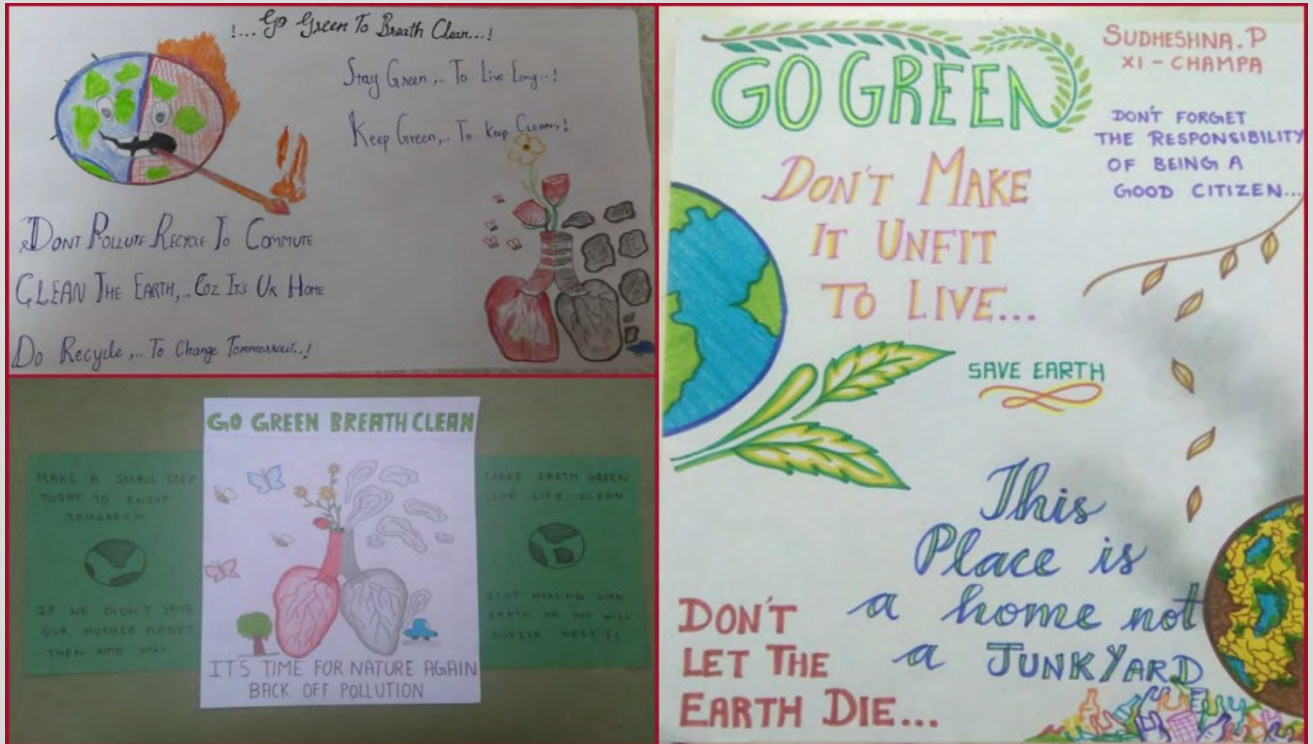 !... Go Green To Breath Clean...!
Stay Green,.. To Live Long..!
Keep Green,.. To Keep Clean..!
DONT POLLUTE RECYCLE TO COMMUTE
CLEAN THE EARTH,.. COZ ITS UR HOME
Do Recycle,... To Change Tommorrow..!
GO GREEN BREATH CLEAN
MAKE A SMALL STEP
TODAY TO ENJOY
TOMORROW
IF WE DIDN'T SAVE
OUR MOTHER PLANET
THEN WHO WILL
MAKE EARTH GREEN
LIVE LIFE CLEAN
STOP MESSING WITH
EARTH OR YOU WILL
SUFFER NEXT !!
IT'S TIME FOR NATURE AGAIN
BACK OFF POLLUTION
GO GREEN
SUDHESHNA.P
XI - CHAMPA
DON'T FORGET
THE RESPONSIBILITY
OF BEING A
GOOD CITIZEN...
DON'T MAKE
IT UNFIT
TO LIVE...
SAVE EARTH
This
Place is
a home not
a JUNKYARD
DON'T
LET THE
EARTH DIE...